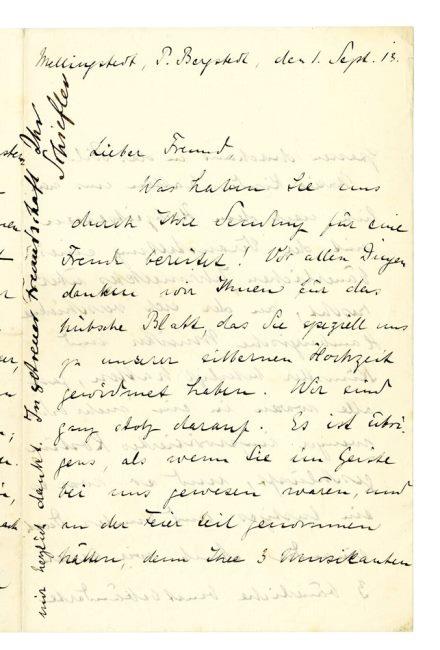 Mellingstedt, P. Bergstedt, den 1. Sept. 13.
Lieber Freund
Was haben Sie uns
durch Ihre Sendung für eine
Freude bereitet! Vor allen Dingen
danken wir Ihnen für das
hübsche Blatt, das Sie speziell uns
zu unserer silbernen Hochzeit
gewidmet haben. Wir sind
ganz stolz darauf. Es ist übri-
gens, als wenn Sie im Geiste
bei uns gewesen wären, und
an der Feier teil genommen
hätten, denn Ihre 3 Musikanten
mir herzlich dankt. In getreuer Freundschaft Ihr
Schiefler